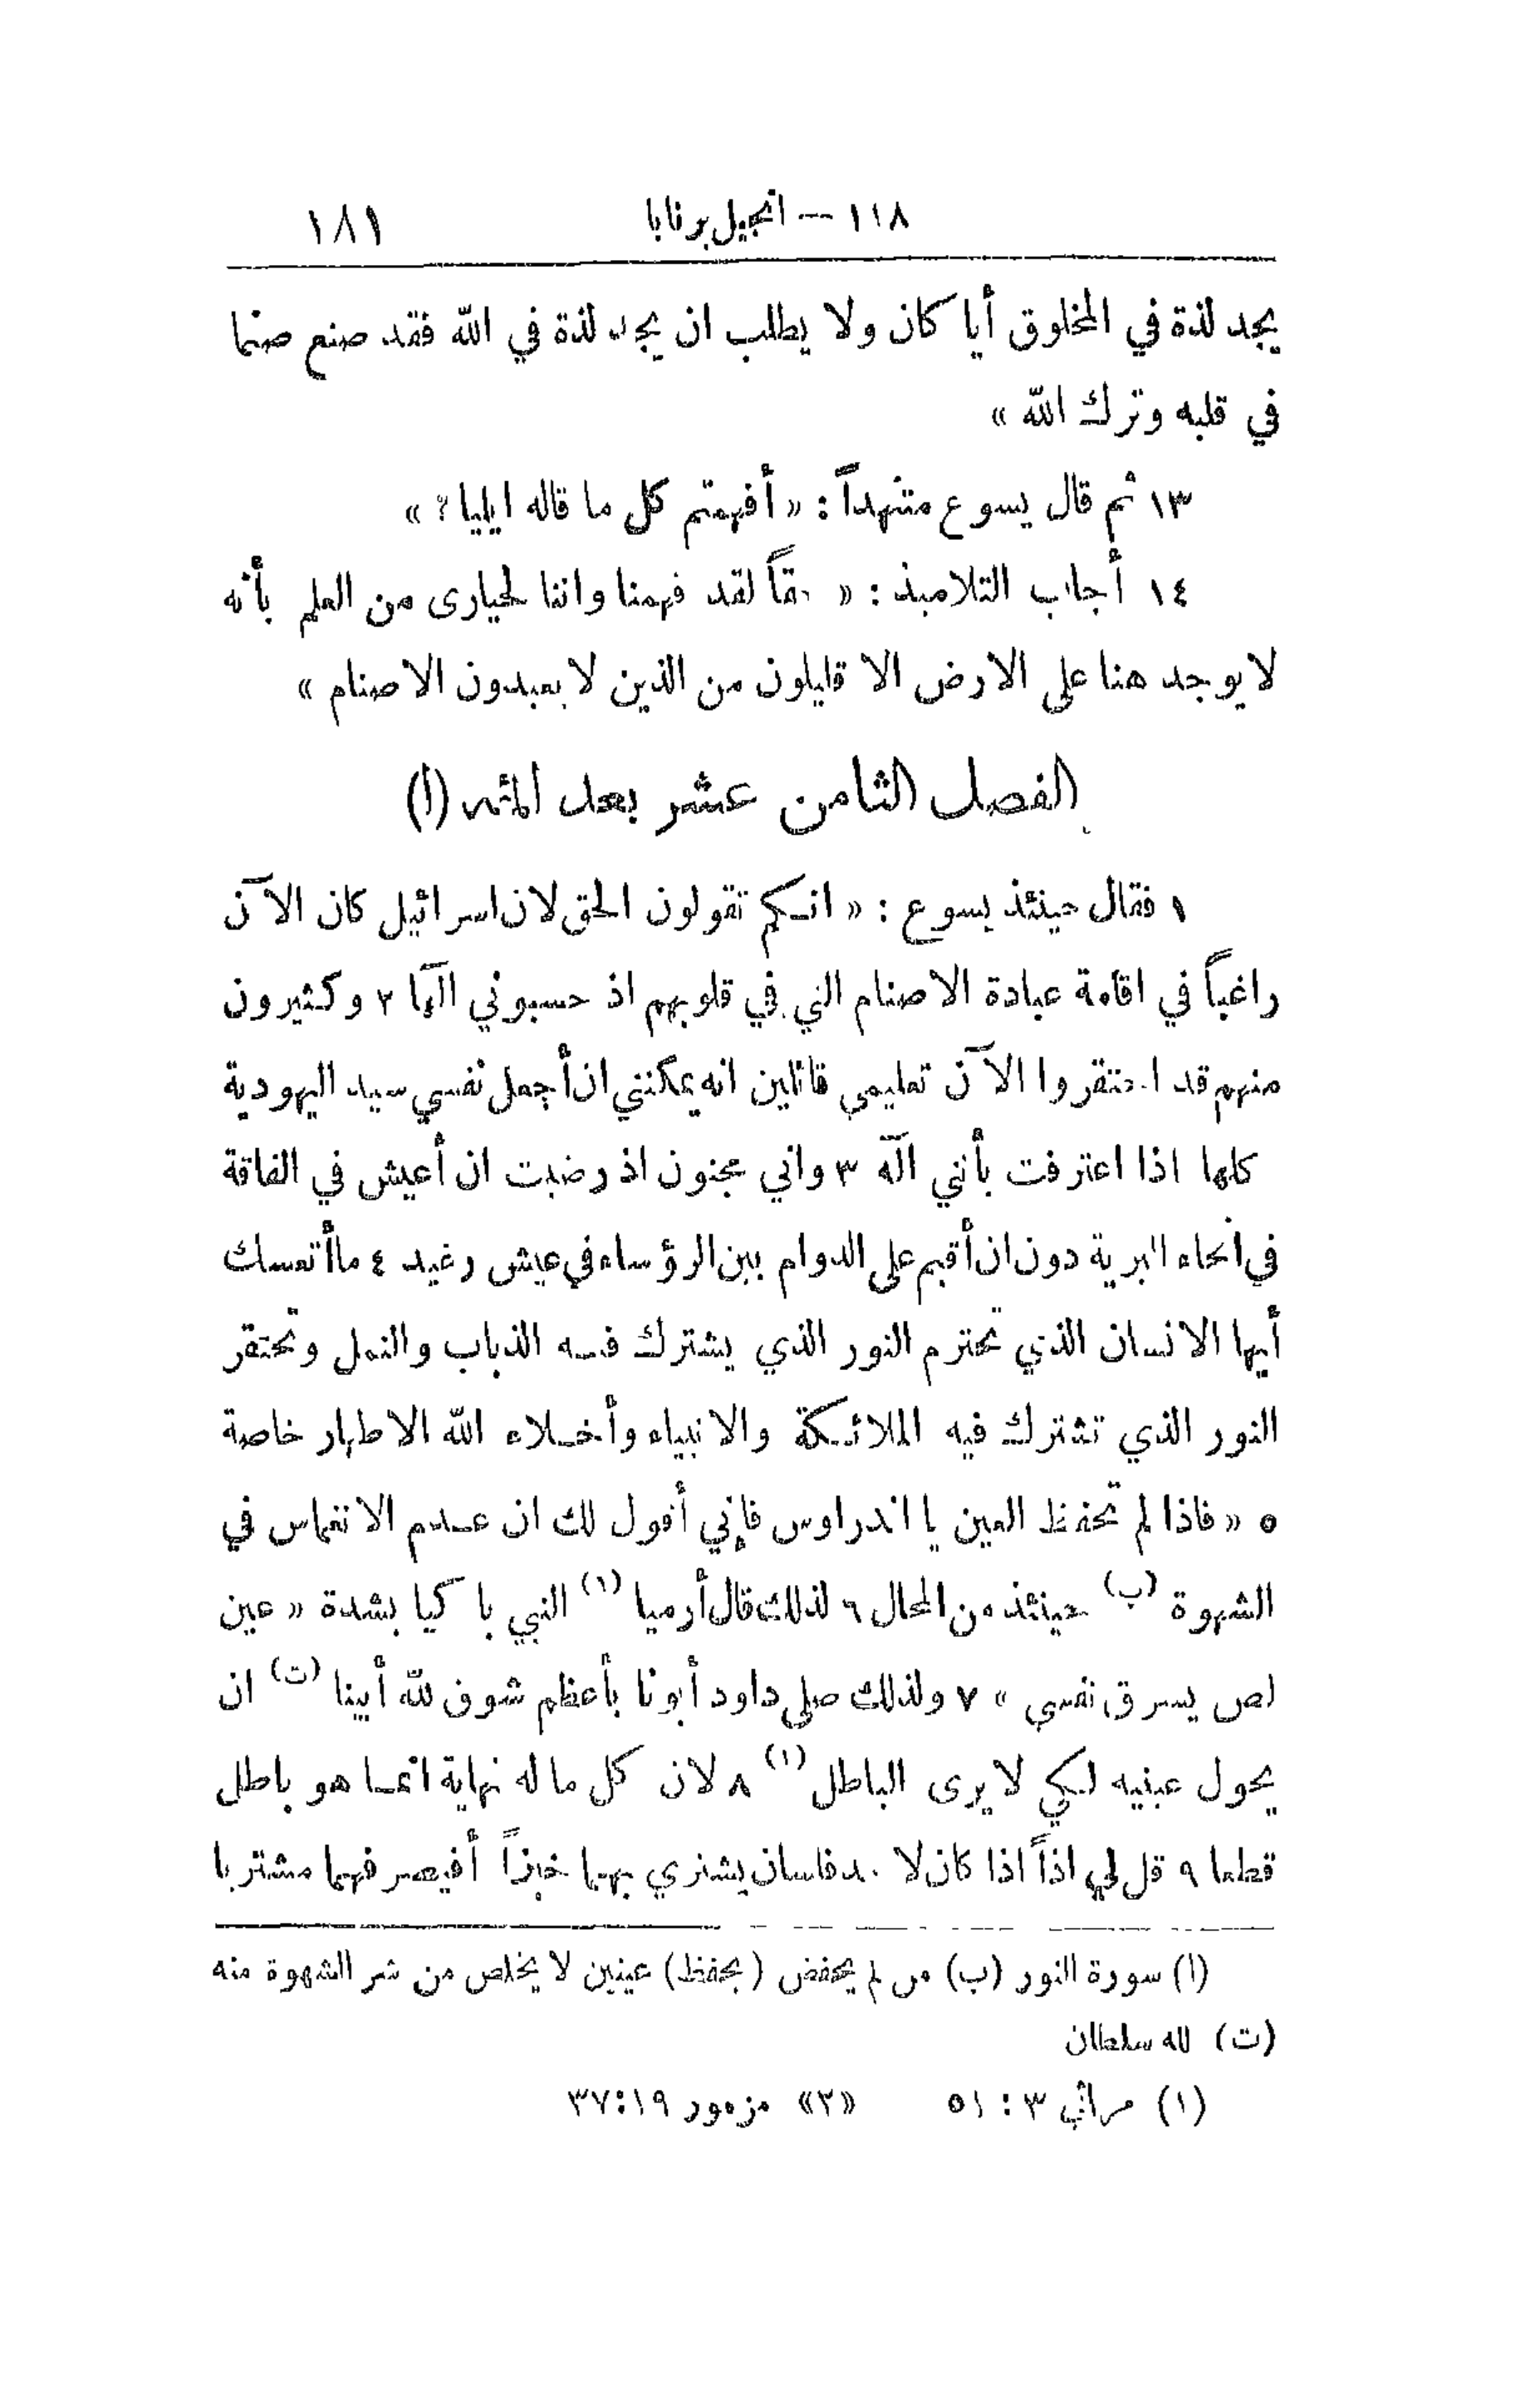 ١١٨ — انجيل برنابا ١٨١
يجد لذة في المخلوق أيا كان ولا يطلب ان يجد لذة في الله فقد صنع صنما
في قلبه وترك الله »
١٣ ثم قال يسوع متنهداً : « أفهمتم كل ما قاله ايليا ؟ »
١٤ أجاب التلاميذ : « حقاً لقد فهمنا واننا لحيارى من العلم بأنه
لا يوجد هنا على الارض الا قليلون من الذين لا يعبدون الاصنام »
الفصل الثامن عشر بعد المئه (ا)
١ فقال حينئذ يسوع : « انكم تقولون الحق لان اسرائيل كان الآن
راغباً في اقامة عبادة الاصنام التي في قلوبهم اذ حسبوني الٓها ٢ وكثيرون
منهم قد احتقروا الآن تعليمي قائلين انه يمكنني ان أجعل نفسي سيد اليهودية
كلها اذا اعترفت بأنني الٓه ٣ واني مجنون اذ رضيت ان أعيش في الفاقة
في انحاء البرية دون ان أقيم على الدوام بين الرؤساء في عيش رغيد ٤ ما أتعسك
أيها الانسان الذي تحترم النور الذي يشترك فيه الذباب والنمل وتحتقر
النور الذي تشترك فيه الملائكة والانبياء وأخلاء الله الاطهار خاصة
٥ « فاذا لم تحفظ العين يا اندراوس فإني أقول لك ان عدم الانغماس في
الشهوة (ب) حينئذ من المحال ٦ لذلك قال أرميا (١) النبي باكيا بشدة « عين
لص يسرق نفسي » ٧ ولذلك صلى داود أبونا بأعظم شوق لله أبينا (ت) ان
يحول عينيه لكي لا يرى الباطل (١) ٨ لان كل ما له نهاية انما هو باطل
قطعا ٩ قل لي اذاً اذا كان لاحد فلسان يشتري بهما خبزاً أفيصرفهما مشتريا
(ا) سورة النور (ب) من لم يحفض (يحفظ) عينين لا يخلص من شر الشهوة منه
(ت) لله سلطان
(١) مراثي ٣ : ٥١ «٢» مزمور ٣٧:١٩